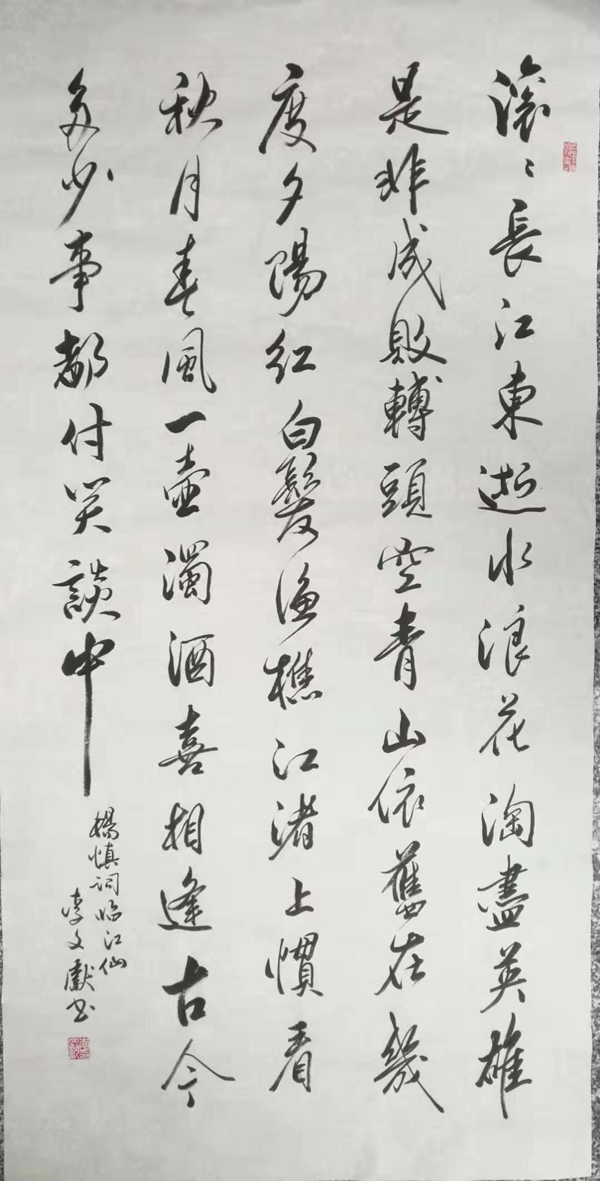 滚〻長江東逝水浪花淘盡英雄
是非成敗轉頭空青山依舊在幾
度夕陽紅白髮渔樵江渚上慣看
秋月春風一壺濁酒喜相逢古今
多少事都付笑談中
楊慎词临江仙
李文獻书